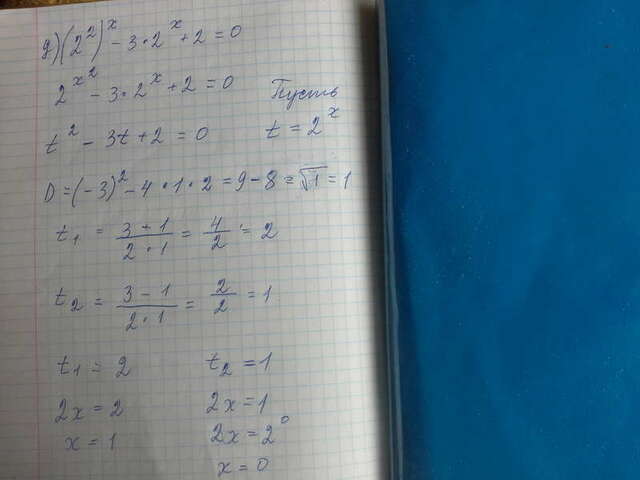 д) (2²)ˣ - 3·2ˣ + 2 = 0
2ˣ² - 3·2ˣ + 2 = 0 Пусть
t² - 3t + 2 = 0 t = 2ˣ
D = (-3)² - 4·1·2 = 9 - 8 = √1 = 1
t₁ = (3+1)/(2·1) = 4/2 = 2
t₂ = (3-1)/(2·1) = 2/2 = 1
t₁ = 2 t₂ = 1
2x = 2 2x = 1
x = 1 2x = 2⁰
x = 0